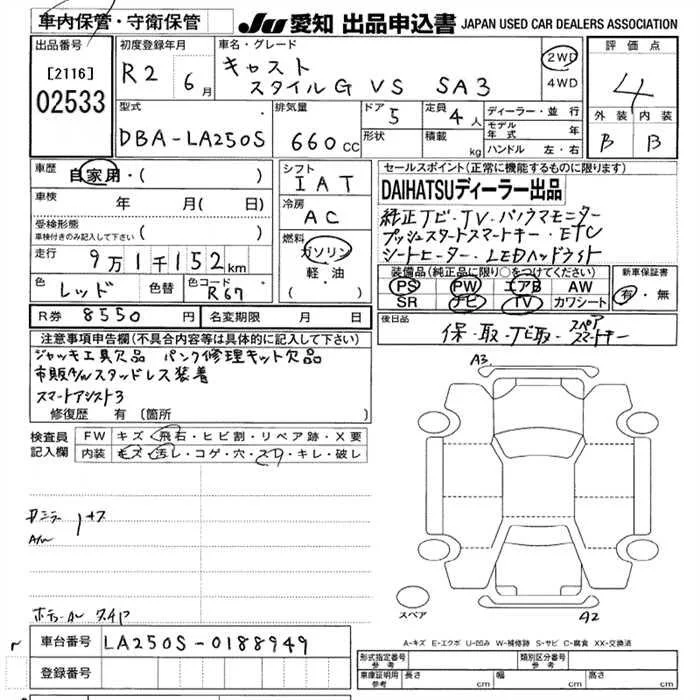 車内保管・守衛保管
JU 愛知 出品申込書 JAPAN USED CAR DEALERS ASSOCIATION
出品番号
[2116]
02533
初度登録年月
R2 6月
車名・グレード
キャスト
スタイルG VS SA3
2WD
4WD
評価点
4
外装 内装
B B
型式
DBA-LA250S
排気量
660 cc
ドア 5
形状
定員 4人
積載 kg
ディーラー・並行
モデル年式 年
ハンドル 左・右
車歴 自家用・( )
車検 年 月( 日)
受検形態
車検付きのみ記入して下さい ( )
走行 9万1千152km
色 レッド 色替 色コード R67
シフト
IAT
冷房
AC
燃料
ガソリン
軽・油
( )
セールスポイント(正常に機能するものに限ります)
DAIHATSUディーラー出品
純正ナビ・TV・パノラマモニター
プッシュスタートスマートキー・ETC
シートヒーター・LEDヘッドライト
装備品(純正品に限り○をつけてください)
PS PW エアB AW
SR ナビ TV カワシート
新車保証書
有・無
R券 8550円 名変期限 月 日
後日品
保・取・ナビ取・スペアスマートキー
注意事項申告欄(不具合内容等は具体的に記入して下さい)
ジャッキ工具欠品 パンク修理キット欠品
市販A/Wスタッドレス装着
スマートアシスト3
修復歴 有(箇所 )
検査員記入欄
FW キズ・飛石・ヒビ割・リペア跡・X要
内装 キズ・汚レ・コゲ・穴・スリ・キレ・破レ
A3
A2
スペア
A/W
車台番号 LA250S-0188949
登録番号
A-キズ E-エクボ U-凹み W-補修跡 S-サビ C-腐食 XX-交換済
形式指定番号 参考
類別区分番号 参考
車庫証明用 参考 長さ cm 幅 cm 高さ cm